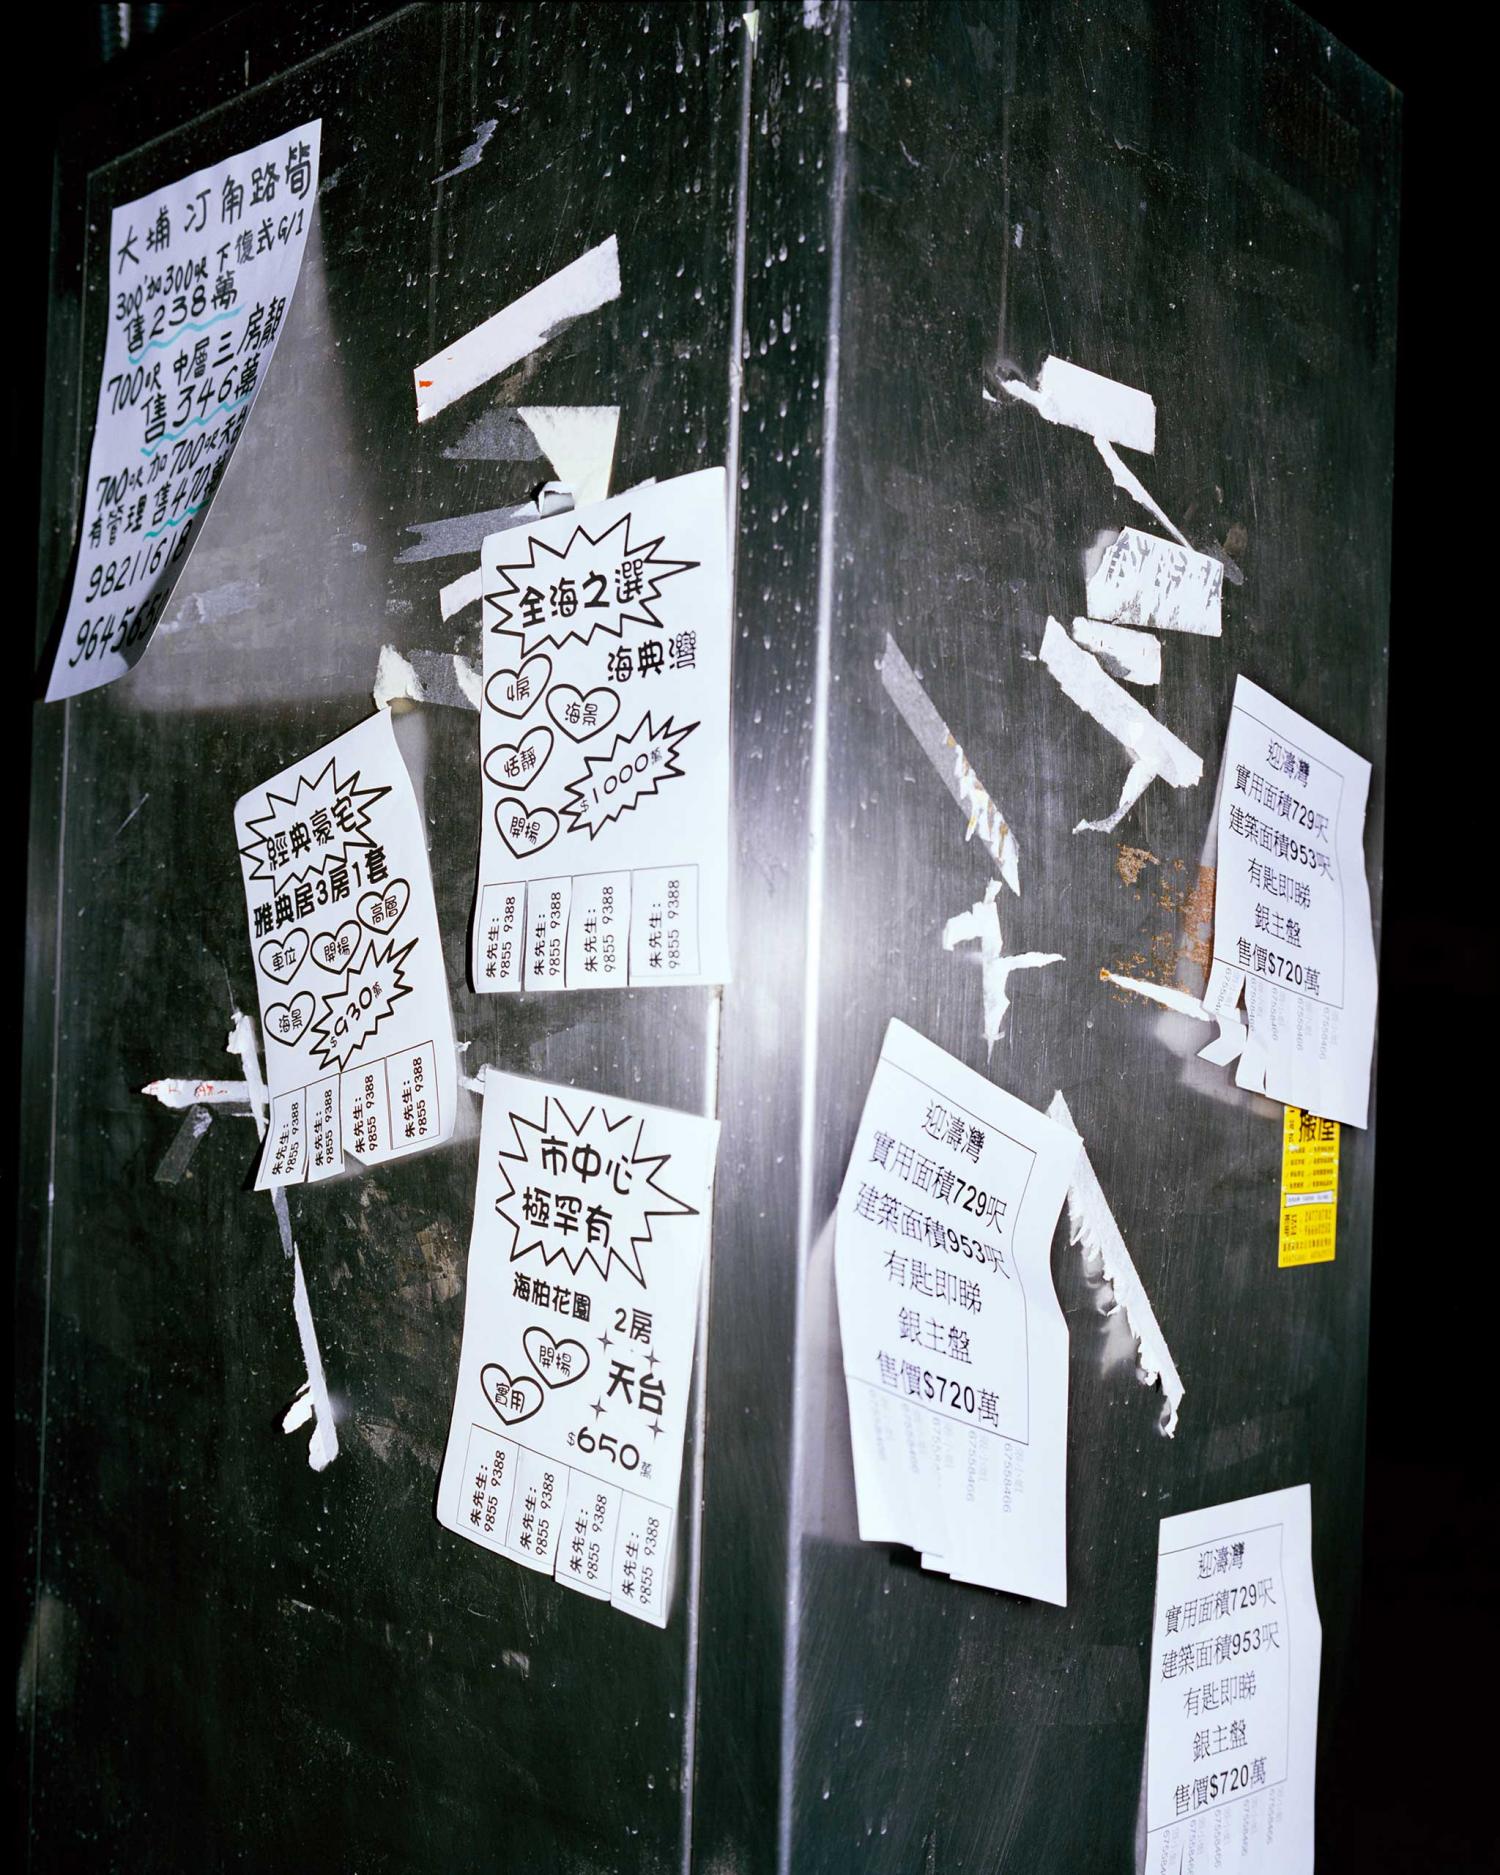 大埔汀角路筍
300'加300呎下復式G/1
售238萬
700呎中層三房靚
售346萬
700呎加700呎天台
有管理售470萬
98211618
964565
全海之選
海典灣
4房
海景
恬靜
$1000萬
開揚
朱先生:
9855 9388
朱先生:
9855 9388
朱先生:
9855 9388
朱先生:
9855 9388
經典豪宅
雅典居3房1套
高層
車位
開揚
海景
$930萬
朱先生:
9855 9388
朱先生:
9855 9388
朱先生:
9855 9388
朱先生:
9855 9388
市中心
極罕有
海柏花園 2房
開揚
實用
天台
$650萬
朱先生:
9855 9388
朱先生:
9855 9388
朱先生:
9855 9388
朱先生:
9855 9388
迎濤灣
實用面積729呎
建築面積953呎
有匙即睇
銀主盤
售價$720萬
67558466
67558466
67558466
迎濤灣
實用面積729呎
建築面積953呎
有匙即睇
銀主盤
售價$720萬
67558466
67558466
67558466
搬屋
迎濤灣
實用面積729呎
建築面積953呎
有匙即睇
銀主盤
售價$720萬
67558466
67558466